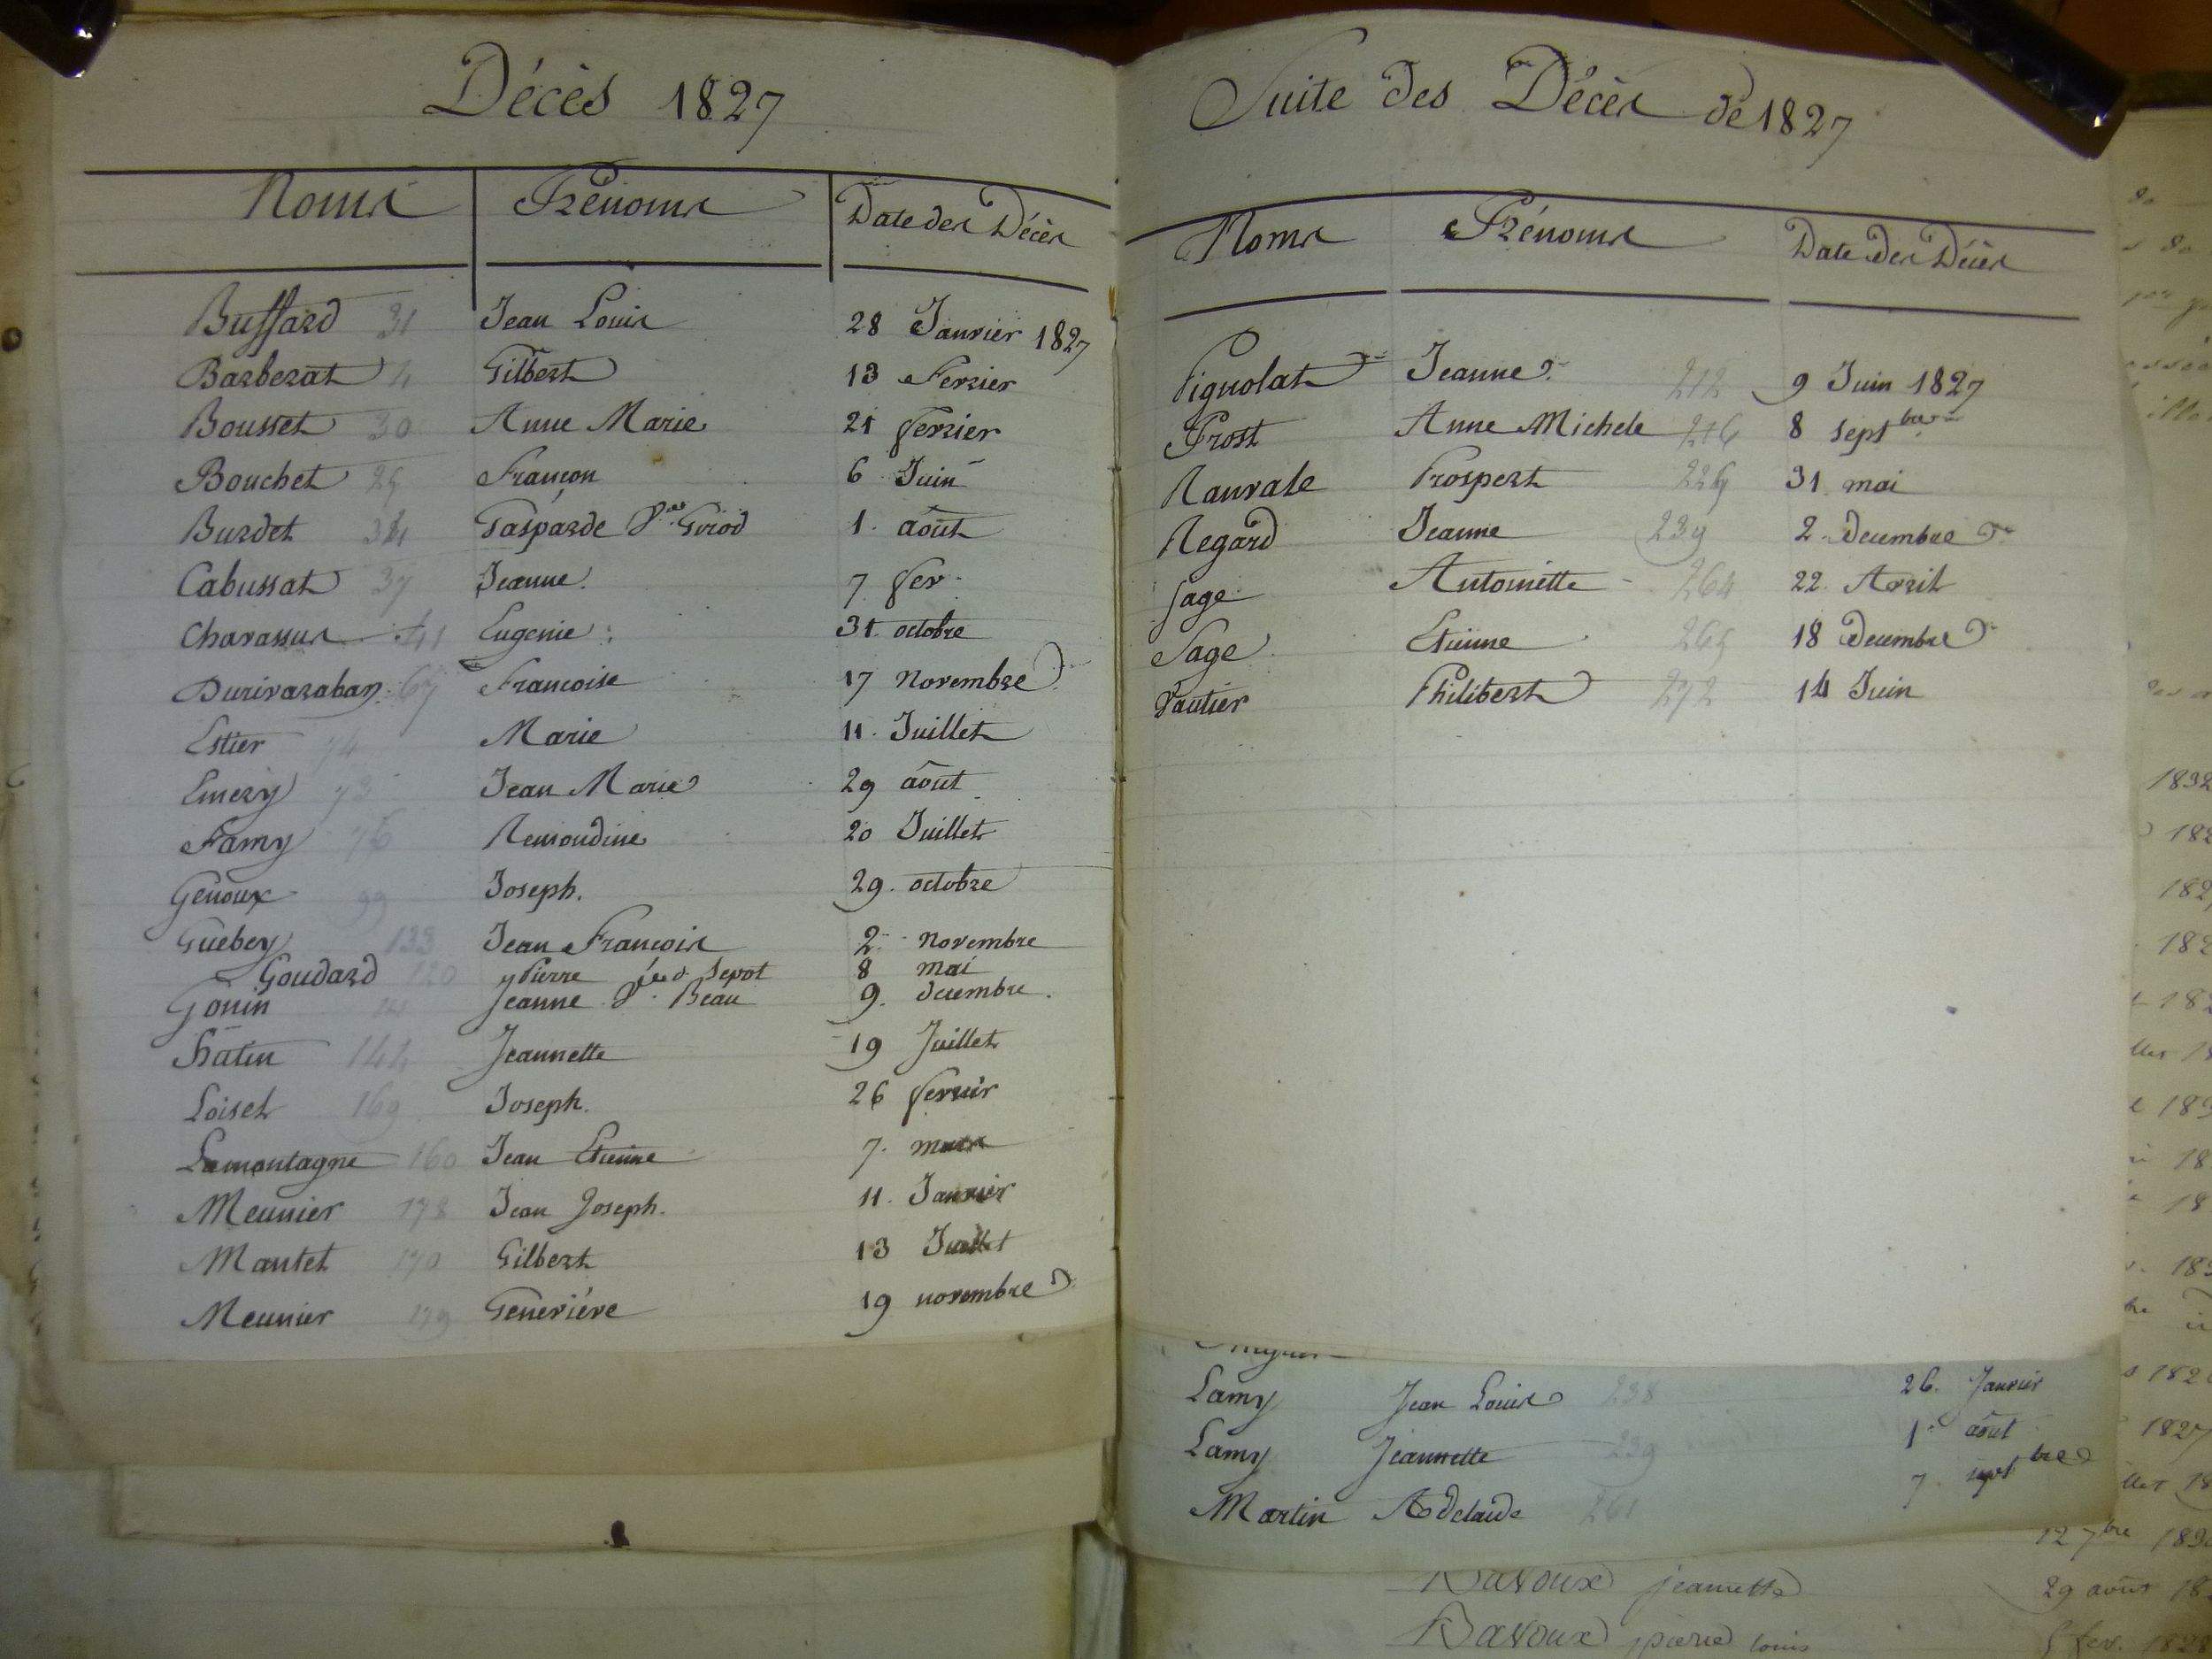 Décès 1827
Noms Prénoms Date des Décès
Buffard 31 Jean Louis 28 Janvier 1827
Barberat 4 Gilbert 13 Fevrier
Bousset 30 Anne Marie 21 fevrier
Bouchet 29 Françon 6 Juin
Burdet 34 Gasparde Vve Girod 1. août
Cabussat 37 Jeanne 7 fev.
Chavassus 41 Eugenie 31 octobre
Durivaraban 67 Francoise 17 Novembre
Estier 74 Marie 11. Juillet
Emery 73 Jean Marie 29 août
Famy 76 Remondine 20 Juillet
Genoux 99 Joseph. 29. octobre
Guebey 133 Jean François 2 Novembre
Goudard 120 Pierre 8 mai
Gonin Jeanne Vve Beau 9. decembre.
Hatin 144 Jeannette 19 Juillet
Loiset 169 Joseph. 26 fevrier
Lamontagne 160 Jean Etienne 7. mars
Meunier 178 Jean Joseph. 11. Janvier
Mantet 170 Gilbert 13 Juillet
Meunier 179 Geneviéve 19 novembre
Suite des Décès de 1827
Noms Prénoms Date des Décès
Pignolat Jeanne 212 9 Juin 1827
Prost Anne Michele 216 8 septbre
Ranvale Prospert 31 mai
Regard Jeanne 239 2. Decembre
Sage Antoinette 264 22. Avril
Sage Etienne 265 18 Decembre
Vautier Philibert 272 14 Juin
Lamy Jean Louis 238 26. Janvier
Lamy Jeannette 239 1er août
Martin Adelaide 261 7. septbre
Davoux jeannette 29 août 18
Davoux pierre louis 5 fev. 1828